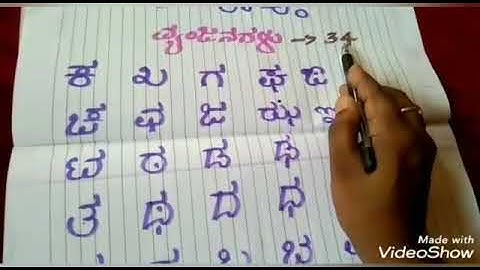 ವ್ಯಂಜನಗಳು → 34
ಕ ಖ ಗ ಘ ಙ
ಚ ಛ ಜ ಝ
ಟ ಠ ಡ ಢ
ತ ಥ ದ ಧ
Made with
VideoShow